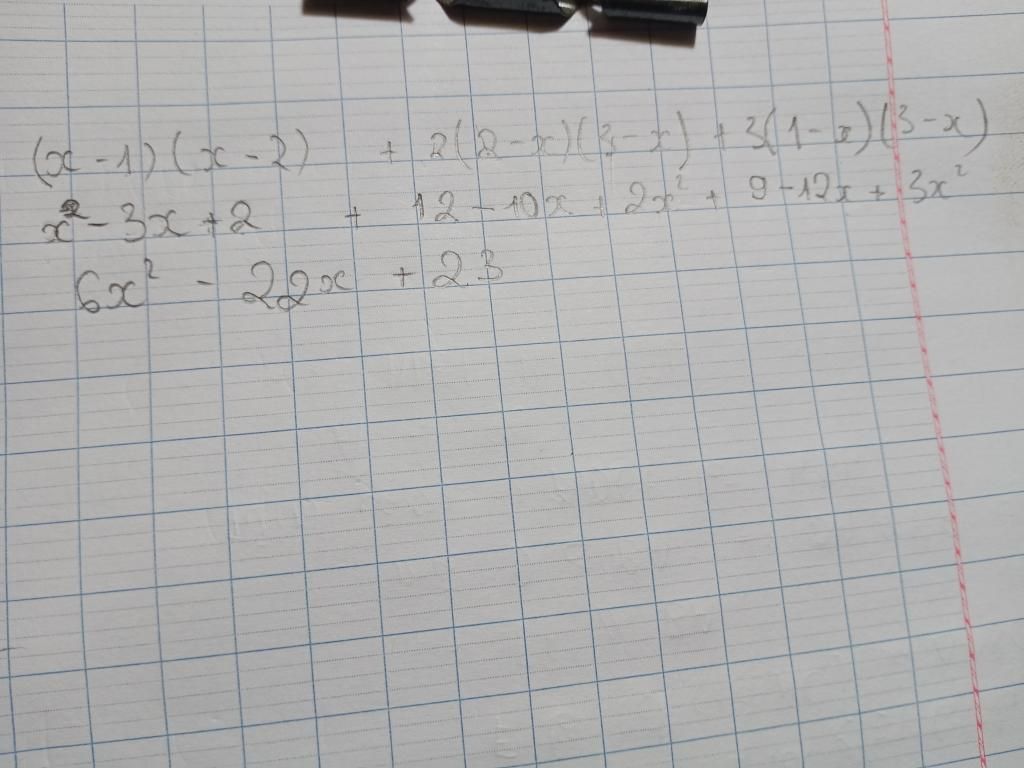 (x-1)(x-2) + 2(2-x)(3-x) + 3(1-x)(3-x)
x²-3x+2 + 12-10x+2x²+9-12x+3x²
6x² - 22x + 23